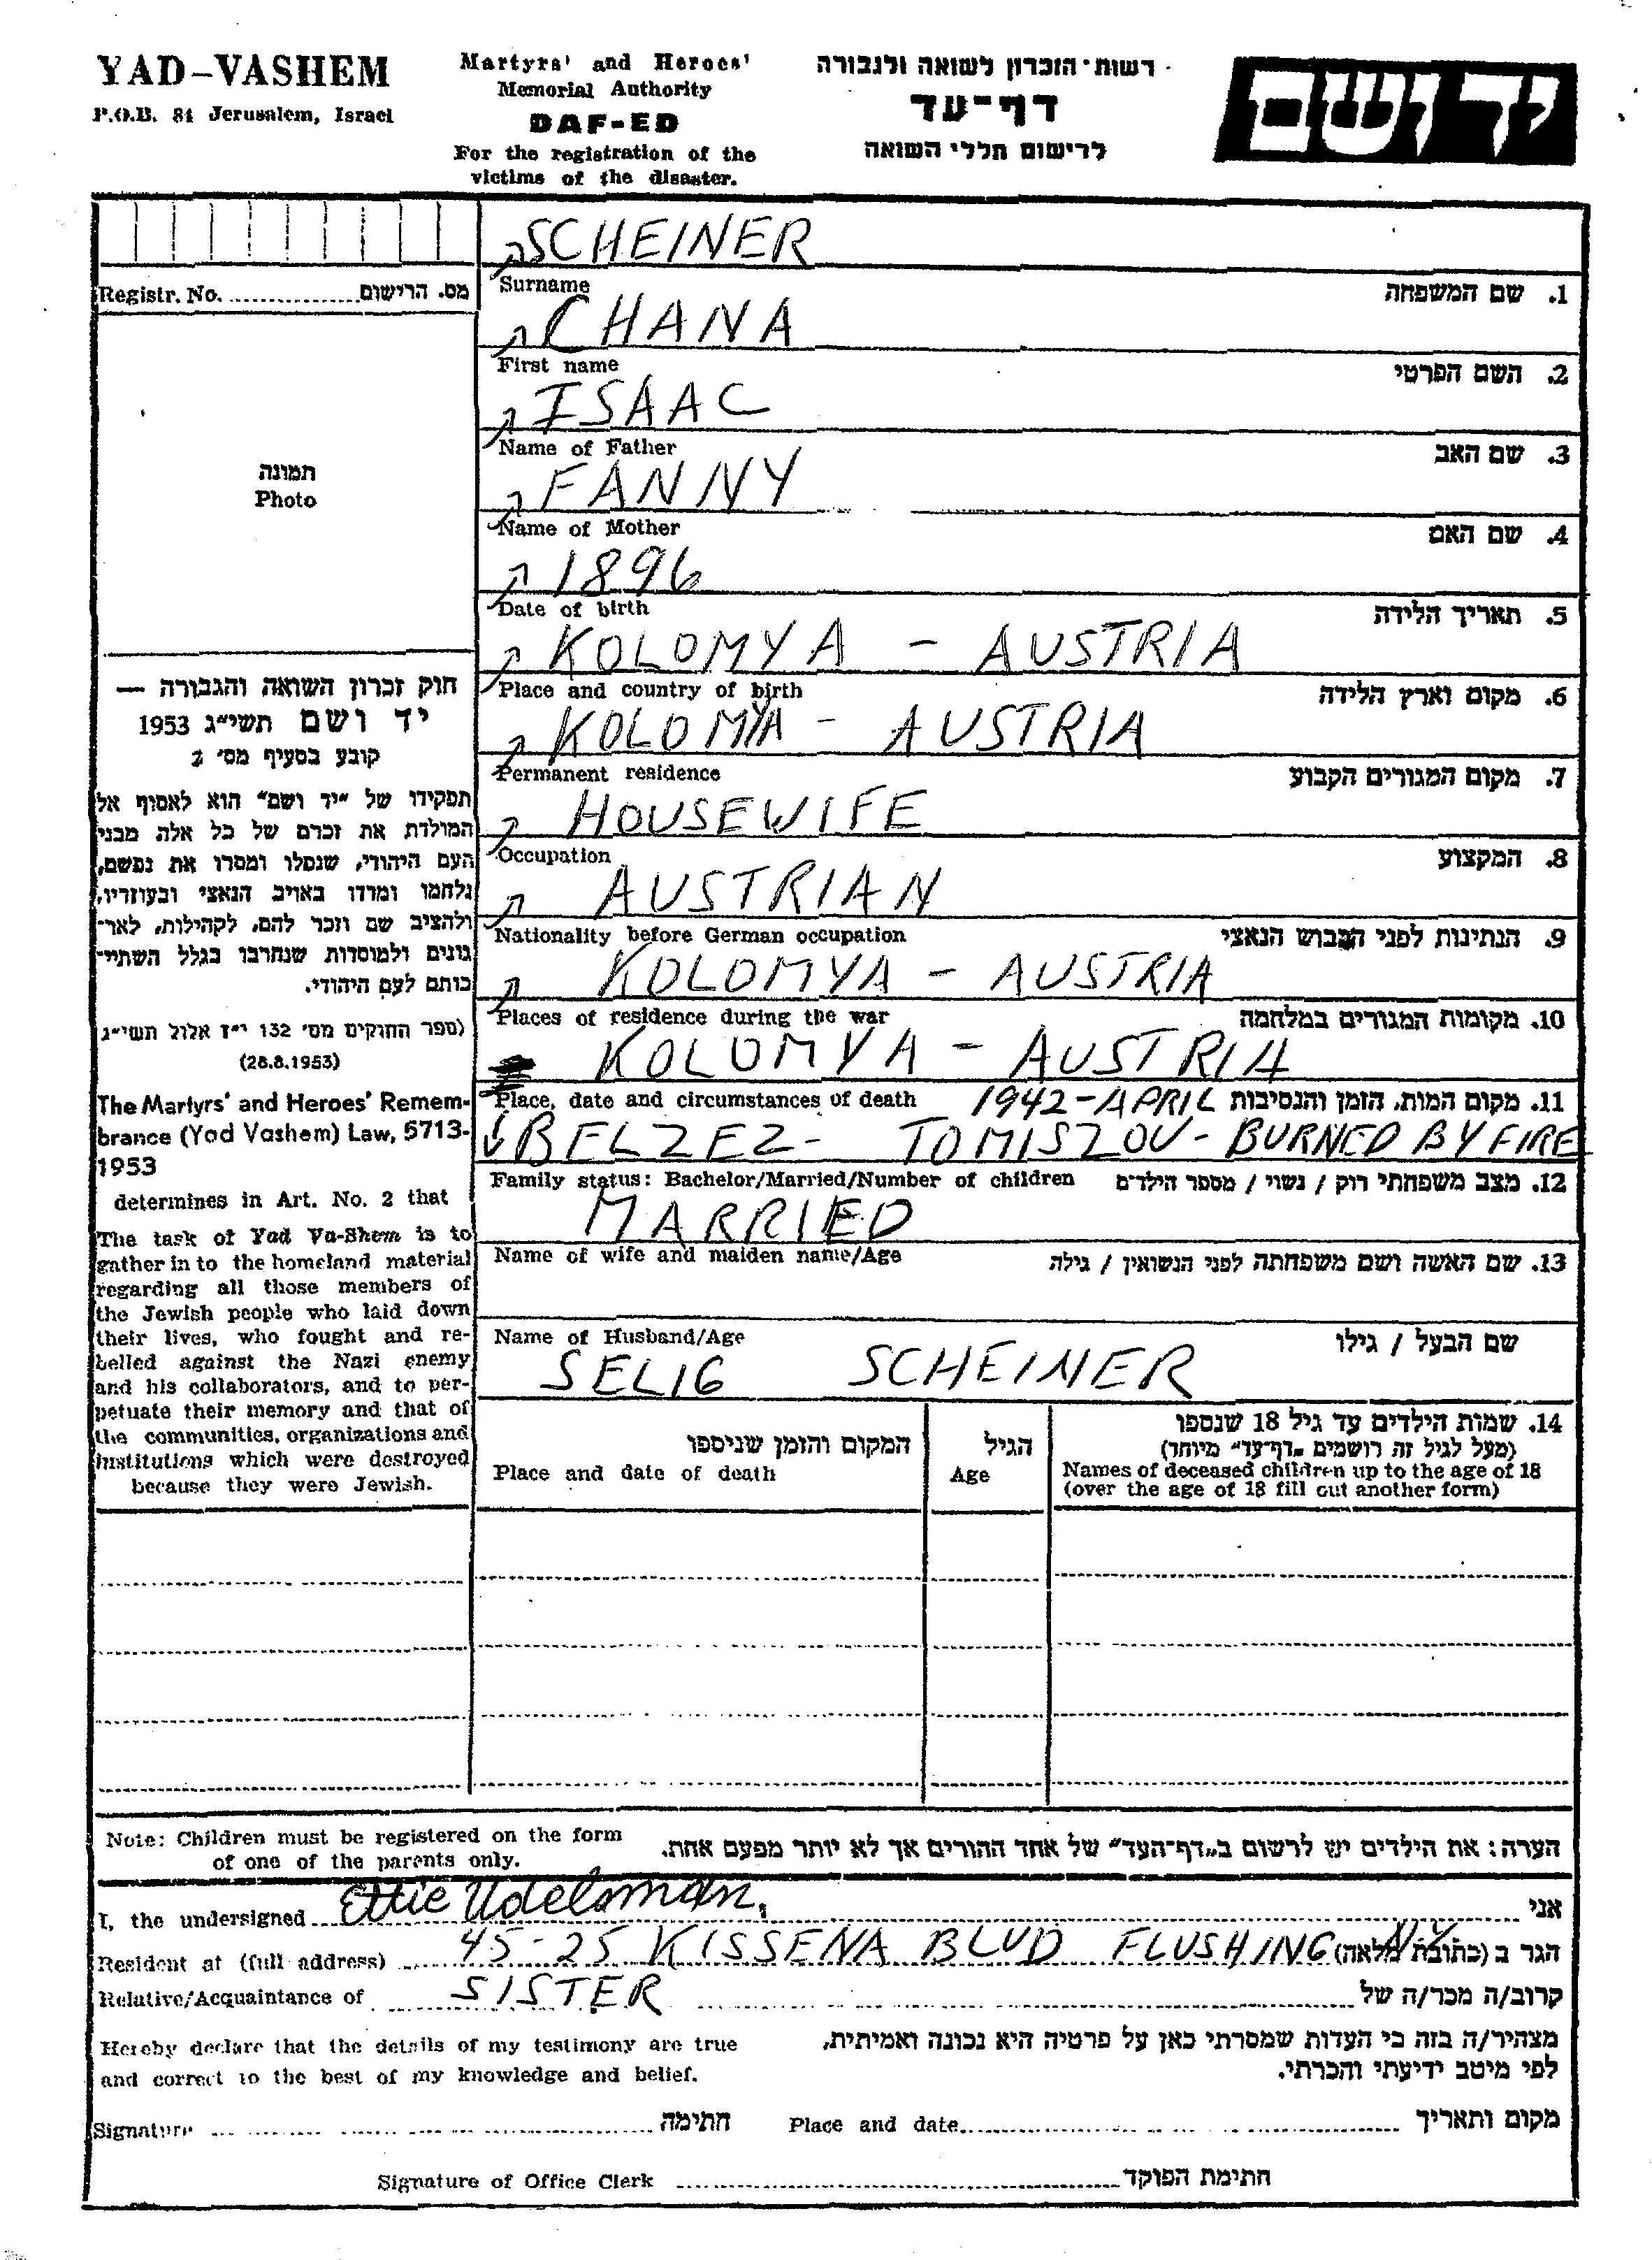 YAD-VASHEM
P.O.B. 84 Jerusalem, Israel
Martyrs' and Heroes'
Memorial Authority
DAF-ED
For the registration of the
victims of the disaster.
רשות הזכרון לשואה ולגבורה
דף-עד
לרישום חללי השואה
יד ושם
SCHEINER
Registr. No. מס. הרישום
Surname 1. שם המשפחה
CHANA
First name 2. השם הפרטי
ISAAC
Name of Father 3. שם האב
FANNY
Name of Mother 4. שם האם
1896
Date of birth 5. תאריך הלידה
KOLOMYA - AUSTRIA
Place and country of birth 6. מקום וארץ הלידה
KOLOMYA - AUSTRIA
Permanent residence 7. מקום המגורים הקבוע
HOUSEWIFE
Occupation 8. המקצוע
AUSTRIAN
Nationality before German occupation 9. הנתינות לפני הכבוש הנאצי
KOLOMYA - AUSTRIA
Places of residence during the war 10. מקומות המגורים במלחמה
KOLOMYA - AUSTRIA
Place, date and circumstances of death 1942-APRIL 11. מקום המות, הזמן והנסיבות
BELZEZ- TOMISZOV- BURNED BY FIRE
Family status: Bachelor/Married/Number of children 12. מצב משפחתי רוק / נשוי / מספר הילדים
MARRIED
Name of wife and maiden name/Age 13. שם האשה ושם משפחתה לפני הנשואין / גילה
Name of Husband/Age שם הבעל / גילו
SELIG SCHEINER
תמונה
Photo
חוק זכרון השואה והגבורה —
יד ושם תשי"ג 1953
קובע בסעיף מס' 2
תפקידו של "יד ושם" הוא לאסוף אל
המולדת את זכרם של כל אלה מבני
העם היהודי, שנפלו ומסרו את נפשם,
נלחמו ומרדו באויב הנאצי ובעוזריו,
ולהציב שם וזכר להם, לקהילות, לאר-
גונים ולמוסדות שנחרבו בגלל השתיי-
כותם לעם היהודי.
(ספר החוקים מס' 132 י"ז אלול תשי"ג
(28.8.1953)
The Martyrs' and Heroes' Remem-
brance (Yad Vashem) Law, 5713-
1953
determines in Art. No. 2 that
The task of Yad Va-Shem is to
gather in to the homeland material
regarding all those members of
the Jewish people who laid down
their lives, who fought and re-
belled against the Nazi enemy
and his collaborators, and to per-
petuate their memory and that of
the communities, organizations and
institutions which were destroyed
because they were Jewish.
המקום והזמן שניספו
Place and date of death
הגיל
Age
14. שמות הילדים עד גיל 18 שנספו
(מעל לגיל זה רושמים "דף-עד" מיוחד)
Names of deceased children up to the age of 18
(over the age of 18 fill out another form)
Note: Children must be registered on the form
of one of the parents only.
הערה: את הילדים יש לרשום ב"דף-העד" של אחד ההורים אך לא יותר מפעם אחת.
I, the undersigned Ettie Udelsman, אני
Resident at (full address) 45-25 KISSENA BLVD FLUSHING NY הגר ב (כתובת מלאה)
Relative/Acquaintance of SISTER קרוב/ה מכר/ה של
Hereby declare that the details of my testimony are true
and correct to the best of my knowledge and belief.
מצהיר/ה בזה כי העדות שמסרתי כאן על פרטיה היא נכונה ואמיתית,
לפי מיטב ידיעתי והכרתי.
Signature חתימה Place and date מקום ותאריך
Signature of Office Clerk חתימת הפוקד